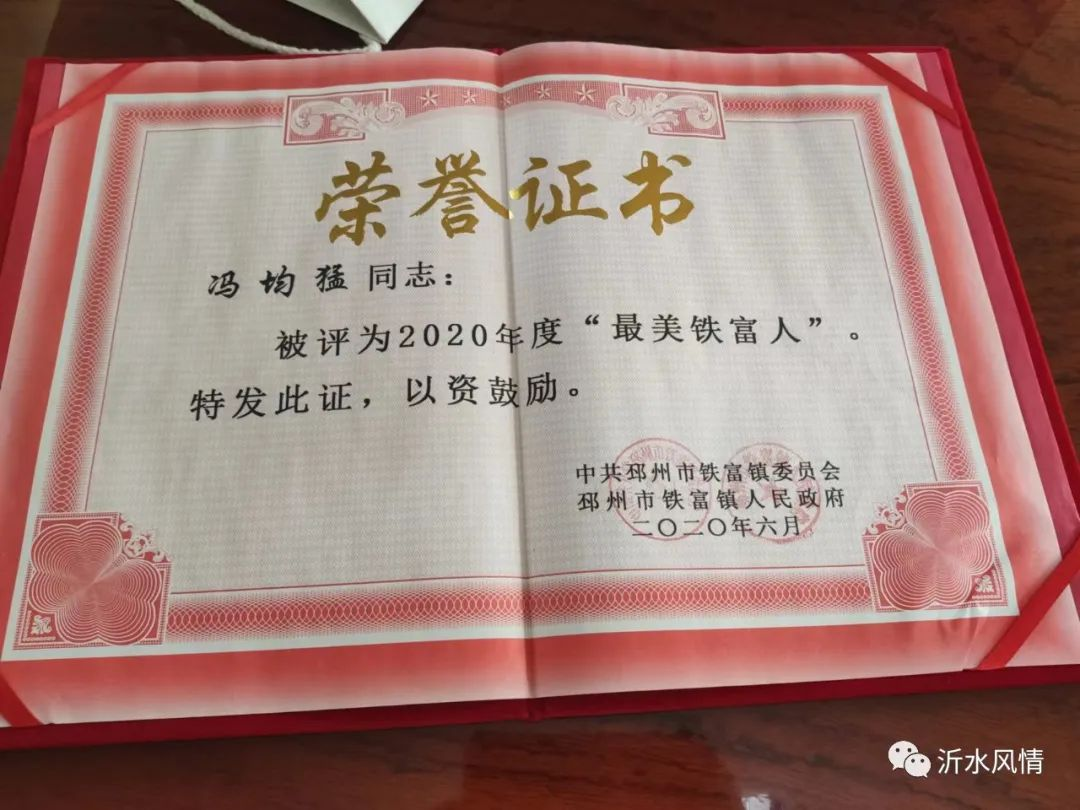 荣誉证书
冯均猛 同志：
被评为2020年度“最美铁富人”。
特发此证，以资鼓励。
中共邳州市铁富镇委员会
邳州市铁富镇人民政府
二〇二〇年六月
沂水风情